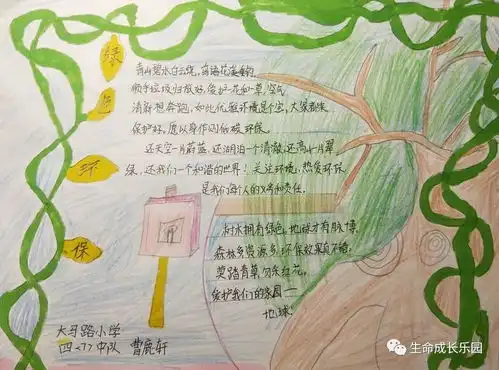 绿色环保
青山碧水白云绕,
顺手垃圾归放好,爱护花和草,空气
清新想奔跑,如此优越环境是个宝,大家都来
保护好,愿以身作则做好环保。
还天空一片蔚蓝,还湖泊一个清澈,还高山一片翠
绿,还我们一个和谐的世界!关注环境,热爱环保,
是我们每个人的义务和责任。
树木拥有绿色,地球才有脉搏,
森林多资源多,环保效果真不错,
莫踏青草,勿采红花,
爱护我们的家园——
地球!
大马路小学
四<7>中队 曹宸轩
生命成长乐园